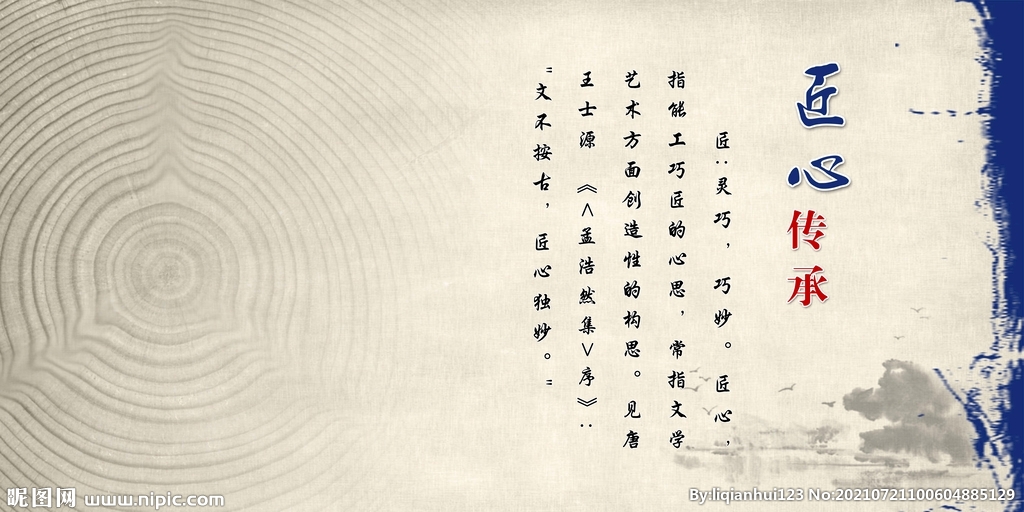 匠心传承
匠:灵巧,巧妙。匠心,
指能工巧匠的心思,常指文学
艺术方面创造性的构思。见唐
王士源《<孟浩然集>序》:
"文不按古,匠心独妙。"
昵图网 www.nipic.com
By:liqianhui123 No:20210721100604885129